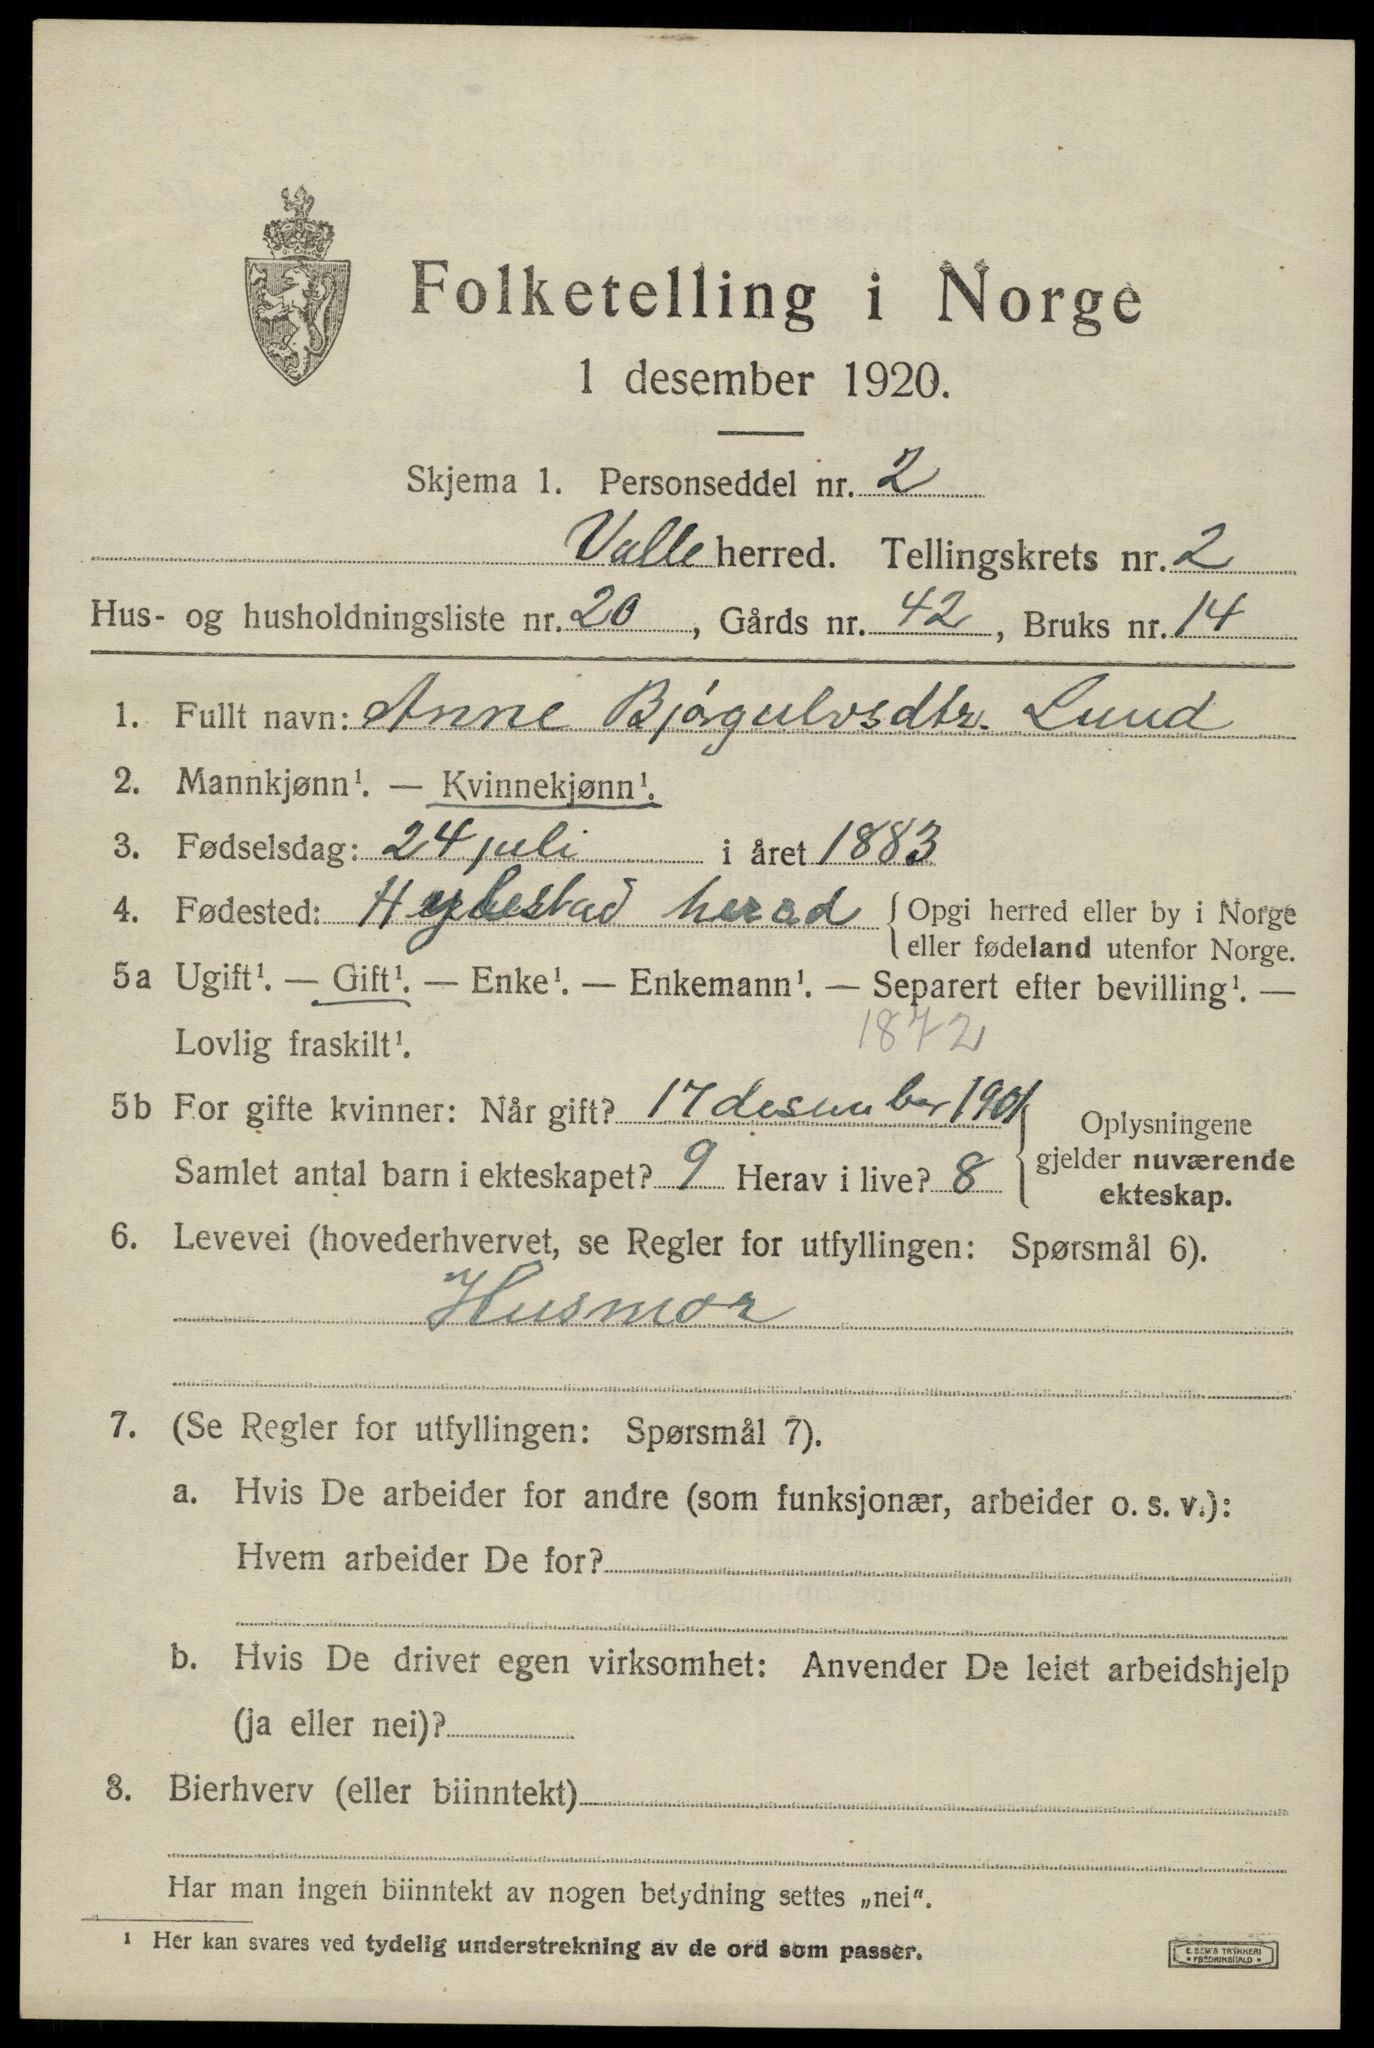 Folketelling i Norge
1 desember 1920.
Skjema 1. Personseddel nr. 2
Valle herred. Tellingskrets nr. 2
Hus- og husholdningsliste nr. 20, Gårds nr. 42, Bruks nr. 14
1. Fullt navn: Anne Bjórgulvsdtr. Lund
2. Mannkjønn¹. — Kvinnekjønn¹.
3. Fødselsdag: 24 juli i året 1883
4. Fødested: Hylestad herad { Opgi herred eller by i Norge
eller fødeland utenfor Norge.
5a Ugift¹. — Gift¹. — Enke¹. — Enkemann¹. — Separert efter bevilling¹. —
Lovlig fraskilt¹. 1872
5b For gifte kvinner: Når gift? 17 desember 1901
Samlet antal barn i ekteskapet? 9 Herav i live? 8
Oplysningene
gjelder nuværende
ekteskap.
6. Levevei (hovederhvervet, se Regler for utfyllingen: Spørsmål 6).
Husmor
7. (Se Regler for utfyllingen: Spørsmål 7).
a. Hvis De arbeider for andre (som funksjonær, arbeider o. s. v.):
Hvem arbeider De for?
b. Hvis De driver egen virksomhet: Anvender De leiet arbeidshjelp
(ja eller nei)?
8. Bierhverv (eller biinntekt)
Har man ingen biinntekt av nogen betydning settes „nei“.
¹ Her kan svares ved tydelig understrekning av de ord som passer.
E. SEM'S TRYKKERI
• FREDRIKSHALD •